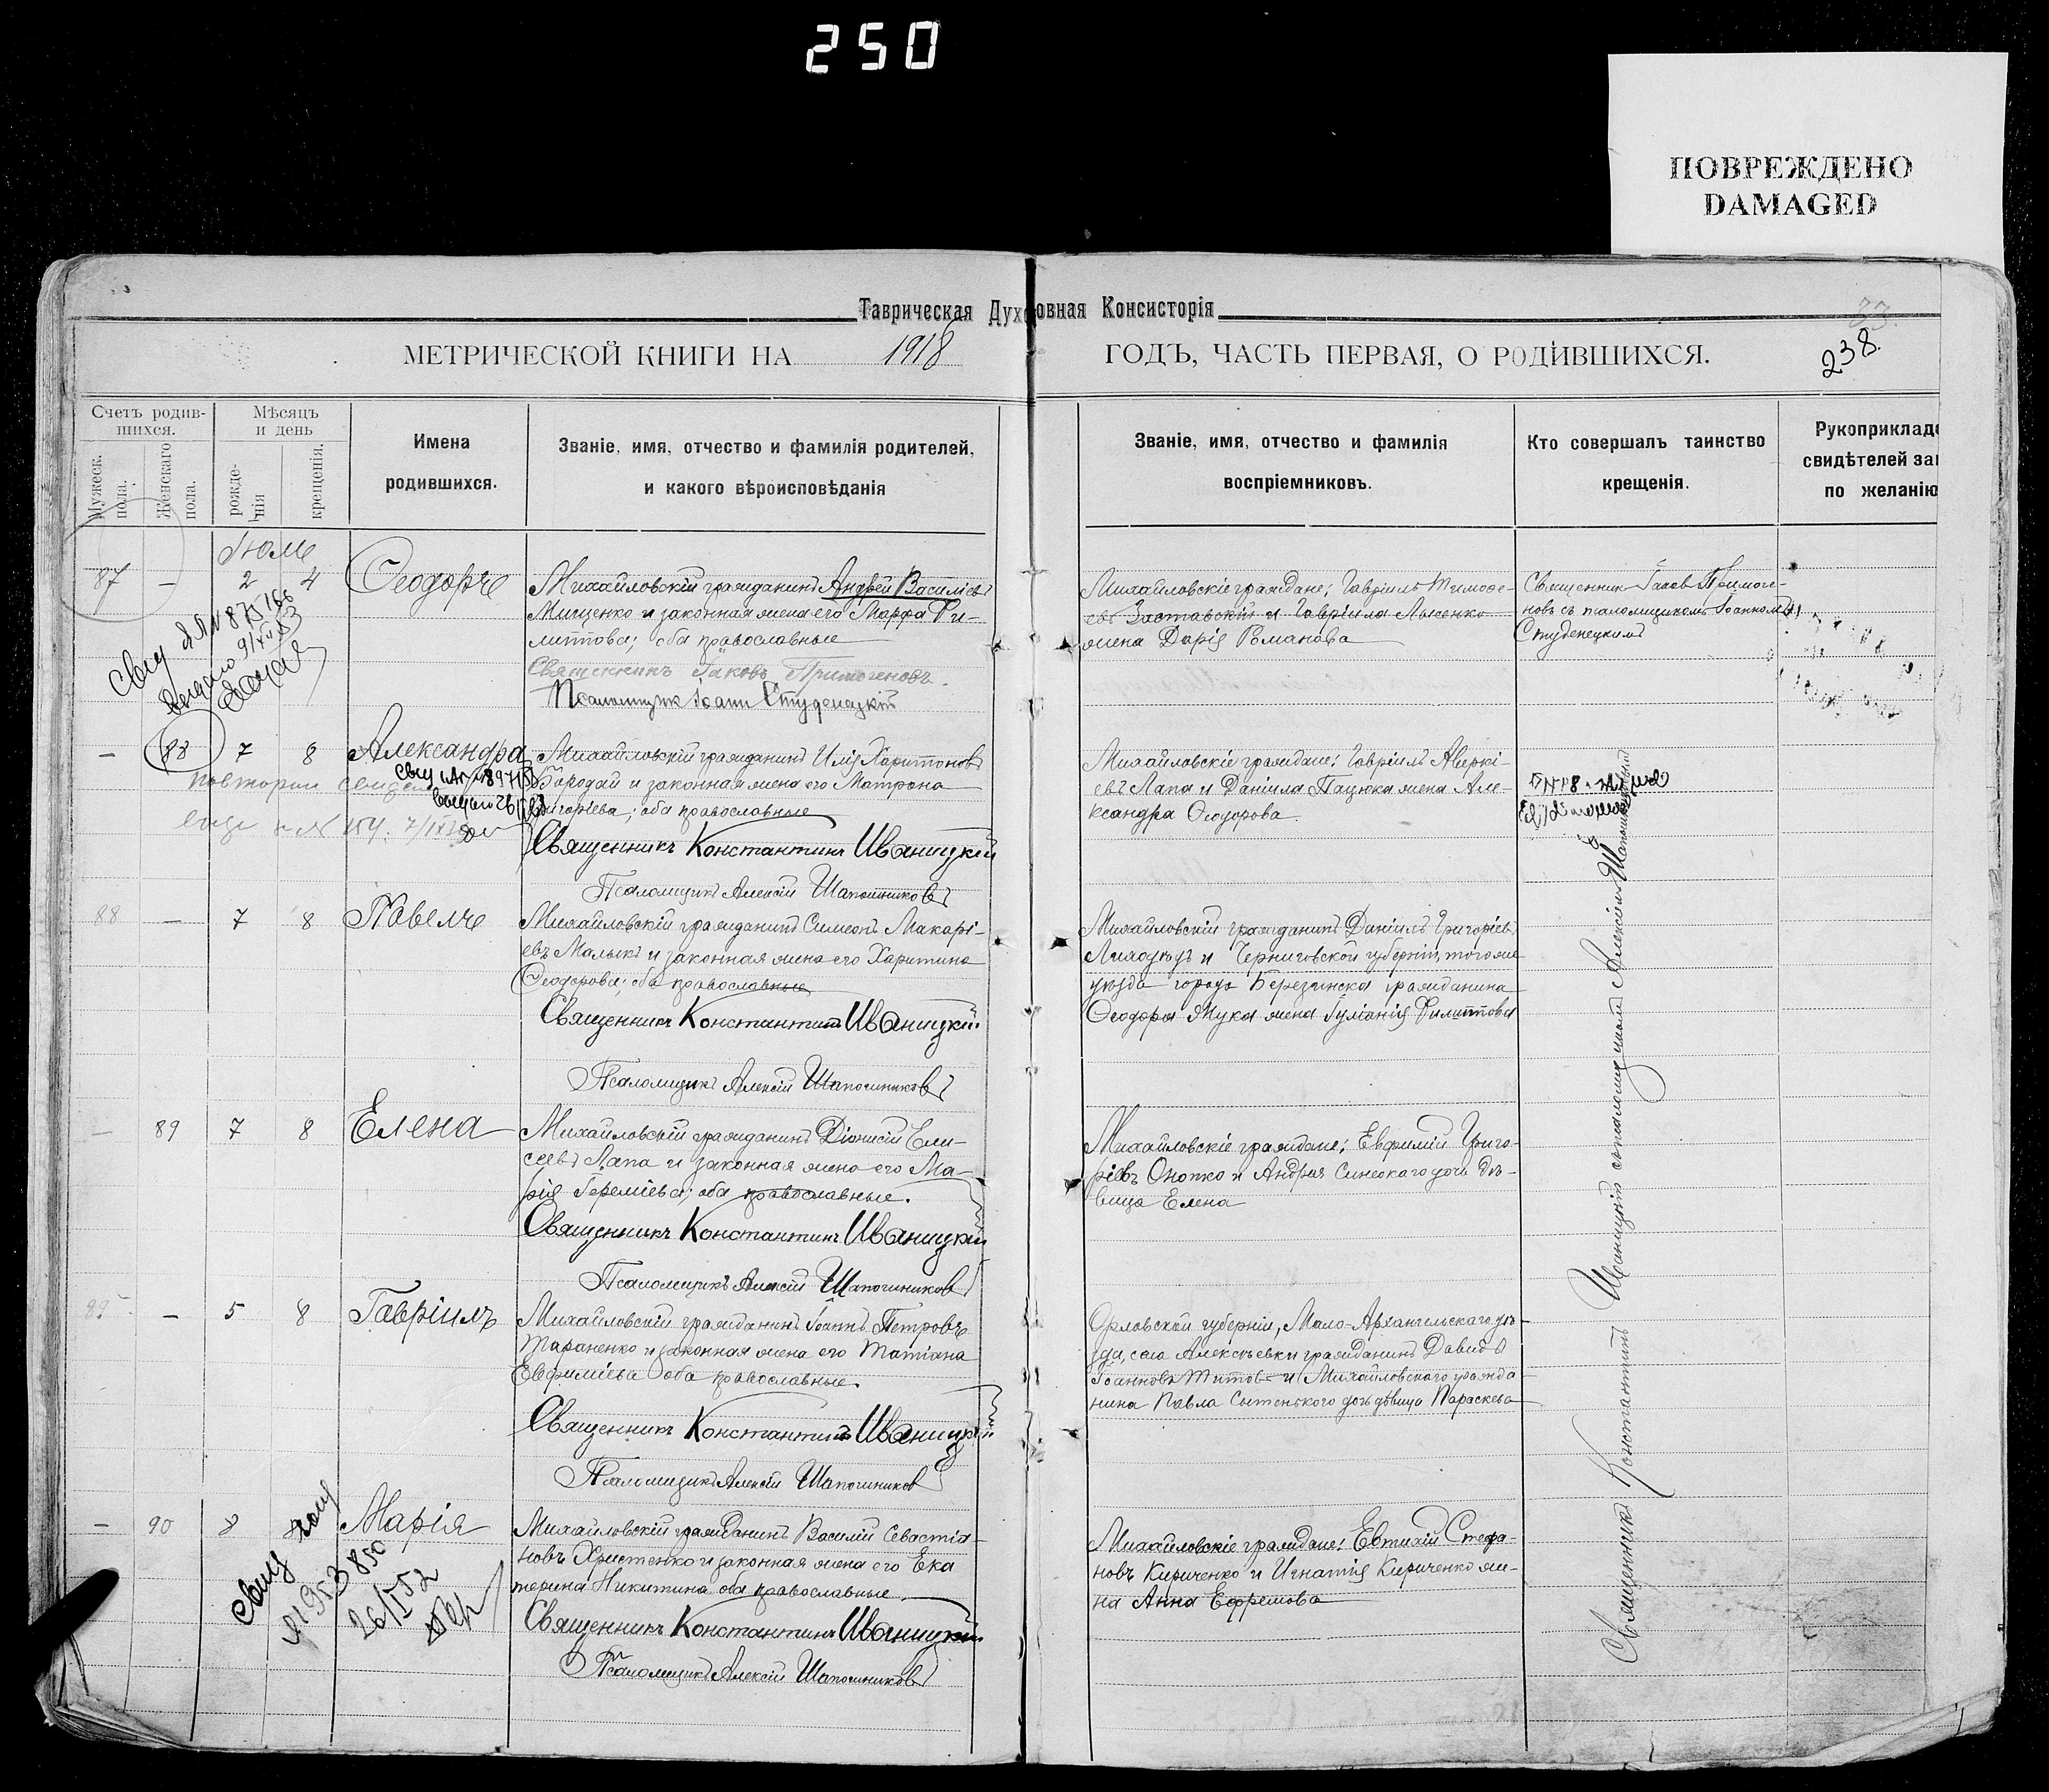 250
ПОВРЕЖДЕНО
DAMAGED
Таврическая Духовная Консисторія
МЕТРИЧЕСКОЙ КНИГИ НА 1918 ГОДЪ, ЧАСТЬ ПЕРВАЯ, О РОДИВШИХСЯ.
238.
Счетъ родив-
шихся.
Мужеск.
пола.
Женскаго
пола.
Мѣсяцъ
и день
рожде-
нія
крещенія.
Имена
родившихся.
Званіе, имя, отчество и фамилія родителей,
и какого вѣроисповѣданія
Званіе, имя, отчество и фамилія
воспріемниковъ.
Кто совершалъ таинство
крещенія.
Рукоприкладс
свидѣтелей за
по желанію
87 — 2 4 Ѳеодоръ
Михайловскій гражданинъ Андрей Васильевъ
Мищенко и законная жена его Марфа Фи-
липпова; оба православные
Священникъ Іаковъ Примогеновъ.
Псаломщик Іоанн Студенецкій
Михайловскіе граждане: Гавріилъ Тимофе-
евъ Заставскій и Гавріила Лысенко
жена Дарія Романова
Священник Іаков Примоге-
новъ съ псаломщикомъ Іоанномъ
Студенецкимъ
— 88 7 8 Александра
Михайловскій гражданинъ Илія Харитоновъ
Бородай и законная жена его Матрона
Григоріева; оба православные
Священникъ Константинъ Иваницкій
Псаломщикъ Алексій Шапошниковъ
Михайловскіе граждане: Гавріилъ Аверкі-
евъ Лапа и Даніила Пацюка жена Але-
ксандра Ѳеодорова.
88 — 7 8 Павелъ
Михайловскій гражданинъ Симеонъ Макарі-
евъ Малыкъ и законная жена его Харитина
Ѳеодорова; оба православные
Священникъ Константинъ Иваницкій
Псаломщикъ Алексій Шапошниковъ
Михайловскій гражданинъ Даніилъ Григоріевъ
и Черниговской губерніи, того же
уѣзда города Березинска гражданина
Ѳеодора Жука жена Іуліанія Филиппова
— 89 7 8 Елена
Михайловскій гражданинъ Діонисій Ели-
сеевъ Лапа и законная жена его Ма-
рія Іереміева; оба православные.
Священникъ Константинъ Иваницкій
Псаломщикъ Алексій Шапошниковъ
Михайловскіе граждане: Евфимій Григо-
ріевъ Онопко и Андрея Синеокаго дочь дѣ-
вица Елена
— 5 8 Гавріилъ
Михайловскій гражданинъ Іоаннъ Петровъ
Тараненко и законная жена его Татіана
Евфиміева оба православные.
Священникъ Константинъ Иваницкій
Псаломщикъ Алексій Шапошников
Орловской губерніи, Мало-Архангельскаго уѣ-
зда, села Алексѣевки гражданинъ Давидъ
Іоанновъ Титов и Михайловского гражда-
нина Павла дочь дѣвица Параскева
— 90 8 Марія
Михайловскій гражданинъ Василій Севастіа-
новъ Христенко и законная жена его Ека
терина Никитина оба православные.
Священникъ Константинъ Иваницкій
Псаломщикъ Алексій Шапошниковъ
Михайловскіе граждане: Евтихій Стефа-
новъ Кириченко и Игнатія Кириченко же-
на Анна Ефремова
Священникъ Константинъ Иваницкій съ псаломщикомъ Алексіемъ Шапошниковымъ